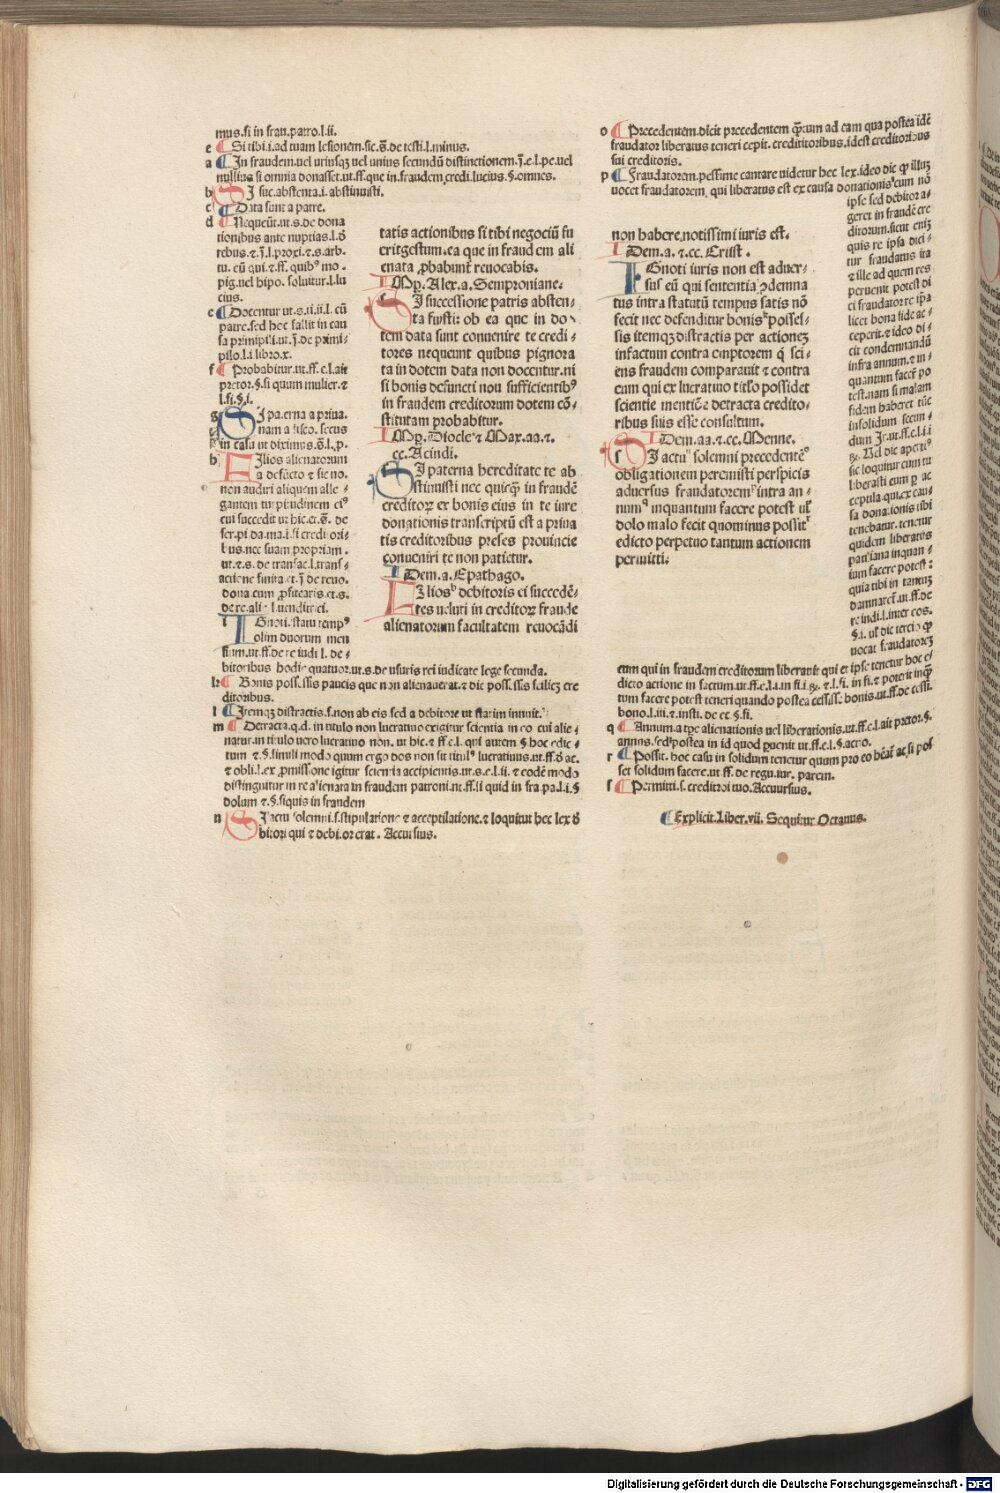 mus.si in frau.patro.l.ii.
e ¶ Si tibi.i.ad tuam lesionem.sic.g̃.de testi.l.minus.
a ¶ In fraudem.uel utriusqʒ uel unius secundũ distinctionem.j̃.e.l.pe.uel
nullius si omnia donasset.ut.ff.que in.fraudem.credi.lucius.§.omnes.
b SI sue.abstenta.i.abstinuisti.
c ¶ Data sunt a patre.
d ¶ Nequeũt.ut.s.de dona
tionibus ante nuptias.l.
rebus.⁊.j̃.l.proxi.⁊.s.arb.
tu.eũ qui.⁊.ff. quibꝰ mo-
pig.uel hipo.soluitur.l.lu
cius.
e ¶ Docentur ut.s.ti.ii.l. cũ
patre.sed hec fallit in cau
sa primipili.ut.j̃.de primi-
pilo.l.i.libro.x.
f ¶ Probabitur.ut.ff.e.l.ait
pretor.§.si quum mulier.⁊
l.fi.§.i.
g SI paterna a priua.
nam a fisco.secus
in casu ut diximus.g̃.l.p.
h FIlios alienatorum
a defuncto ⁊ sic no.
non audiri aliquem alle-
gantem turpitudinem eiꝰ
cui succedit ut hic.et.g̃. de
ser.pi da.ma.l.si credi ori-
bus nec suam propriam.
ut.⁊.s.de transac.l.trans-
actione finita et.j̃ de reuo.
dona cum ꝓfitearis.et.s.
de re.ali.l.uenditrici.
i IGnoti.statu tempꝰ
olim duorum men
sium.ut.ff.de re iudi l. de-
bitoribus hodie quatuor.ut.s.de usuris rei iudicate lege secunda.
k ¶ Bonis possessis paucis que non alienauerat.⁊ dic possessis scilicʒ cre
ditoribus.
l ¶ Itemqʒ distractis.s.non ab eis sed a debitore ut statim innuit.
m ¶ Detracta.q.d. in titulo non lucratiuo exigitur scientia in eo cui alie-
natur.in titulo uero lucratiuo nõn. ut hic.⁊ ff e.l. qui autem § hoc edic-
tum ⁊.§.simili modo quum ergo dos non sit titulꝰ lucratiuus.ut.ff. ac.
⁊ obli.l.ex ꝓmissione igitur scientia accipientis.ut.s.e.l.ii.⁊ eodẽ modo
distinguitur in re alienata in fraudem patroni.ut.ff.si quid in fra.pa.l.i.§
dolum ⁊.§.siquis in fraudem
n SI actu solemni.s.stipulatione ⁊ acceptilatione.⁊ loquitur hec lex
bitori qui ⁊ debitor erat. Accursius.
tatis actionibus si tibi negociũ fu
erit gestum.ea que in fraudem ali
enata ꝓbabunt̃ reuocabis.
IMp. Alex.a. Semproniane.
SI successione patris absten-
ta fuisti: ob ea que in do-
tem data sunt conuenire te credi-
tores nequeunt quibus pignora
ta in dotem data non docentur.ni
si bonis defuncti non sufficientibꝰ
in fraudem creditorum dotem cõ-
stitutam probabitur.
IMp. Diocle.⁊ Max.aa.⁊.
cc. Acindi.
SI paterna hereditate te ab
stinuisti nec quicqʒ in fraudẽ
creditorꝝ ex bonis eius in te iure
donationis transcriptũ est a priua
tis creditoribus preses prouincie
conueniri te non patietur.
IDem.a. Epathago.
FIlios debitoris ei succedẽ-
tes ueluti in creditorꝝ fraude
alienatorum facultatem reuocãdi
o ¶ Precedentem.dicit precedentem q̃ntum ad eam qua postea idẽ
fraudator liberatus teneri cepit. credititoribus.idest creditoribus
sui creditoris.
p ¶ Fraudatorem.pessime cantare uidetur hec lex.ideo dic qꝫ illuʒ
uocet fraudatorem, qui liberatus est ex causa donationis cum nõ
ipse sed debitor a-
geret in fraudẽ cre
ditorum.sicut enim
quis re ipsa dici-
tur fraudatus ita
⁊ ille ad quem res
peruenit potest di
ci fraudator re ipa
licet bona fide ac-
ceperit.⁊ ideo di-
cit condemnandũ
infra annum.⁊ in-
quantum facere po
test.nam si malam
fidem haberet tũc
insolidum secun-
dum Jr.ut.ff.e.l.i.i
Uel dic aperti
sic loquitur cum tu
liberasti eum per ac
ceptila.qui.ex cau
sa donationis tibi
tenebatur.tenetur
quidem liberatus
pauliana inquan-
tum facere potest:
quia tibi in tantuʒ
damnaret.ut.ff.de
re indi.l.inter eos.
§.i. uel dic tercio qꝫ
uocat fraudatoreʒ
eum qui in fraudem creditorum liberauit qui et ipse tenetur hoc e-
dicto actione in factum.ut.ff.e.l.i.in fi.i. ⁊.l.fi. in fi.⁊ poterit inqʒ
tum facere potest teneri quando postea cessisset bonis.ut.ff.de cessi.
bono.l.iii.⁊.insti. de ac.§.fi.
q ¶ Annum.a tpe alienationis uel liberationis.ut.ff.e.l.ait pretor.§.
annos.sed postea in id quod ꝑuenit ut.ff.e.l.§.actio.
r ¶ Possit. hoc casu in solidum tenetur quum pro eo ac si pos
set solidum facere.ut ff. de regu.iur. parem.
s ¶ Permitti.s.creditori tuo.Accursius.
non habere.notissimi iuris est.
IDem.a.⁊.cc. Crisst.
IGnoti iuris non est aduer-
sus eũ qui sententia ꝯdemna
tus intra statutũ tempus satis nõ
fecit nec defenditur bonis posses-
sis itemqʒ distractis per actioneʒ
infactum contra emptorem q̃ sci-
ens fraudem comparauit ⁊ contra
eum qui ex lucratiuo titlo possidet
scientie mentiõe detracta credito-
ribus suis esse consultum.
IDem.aa.⁊.cc. Menne.
SI actu solemni precedentẽ
obligationem peremisti perspicis
aduersus fraudatorem intra an-
num inquantum facere potest ul̃
dolo malo fecit quominus possit
edicto perpetuo tantum actionem
permitti.
¶ Explicit.Liber.vii. Sequitur Octauus.
Digitalisierung gefördert durch die Deutsche Forschungsgemeinschaft - DFG